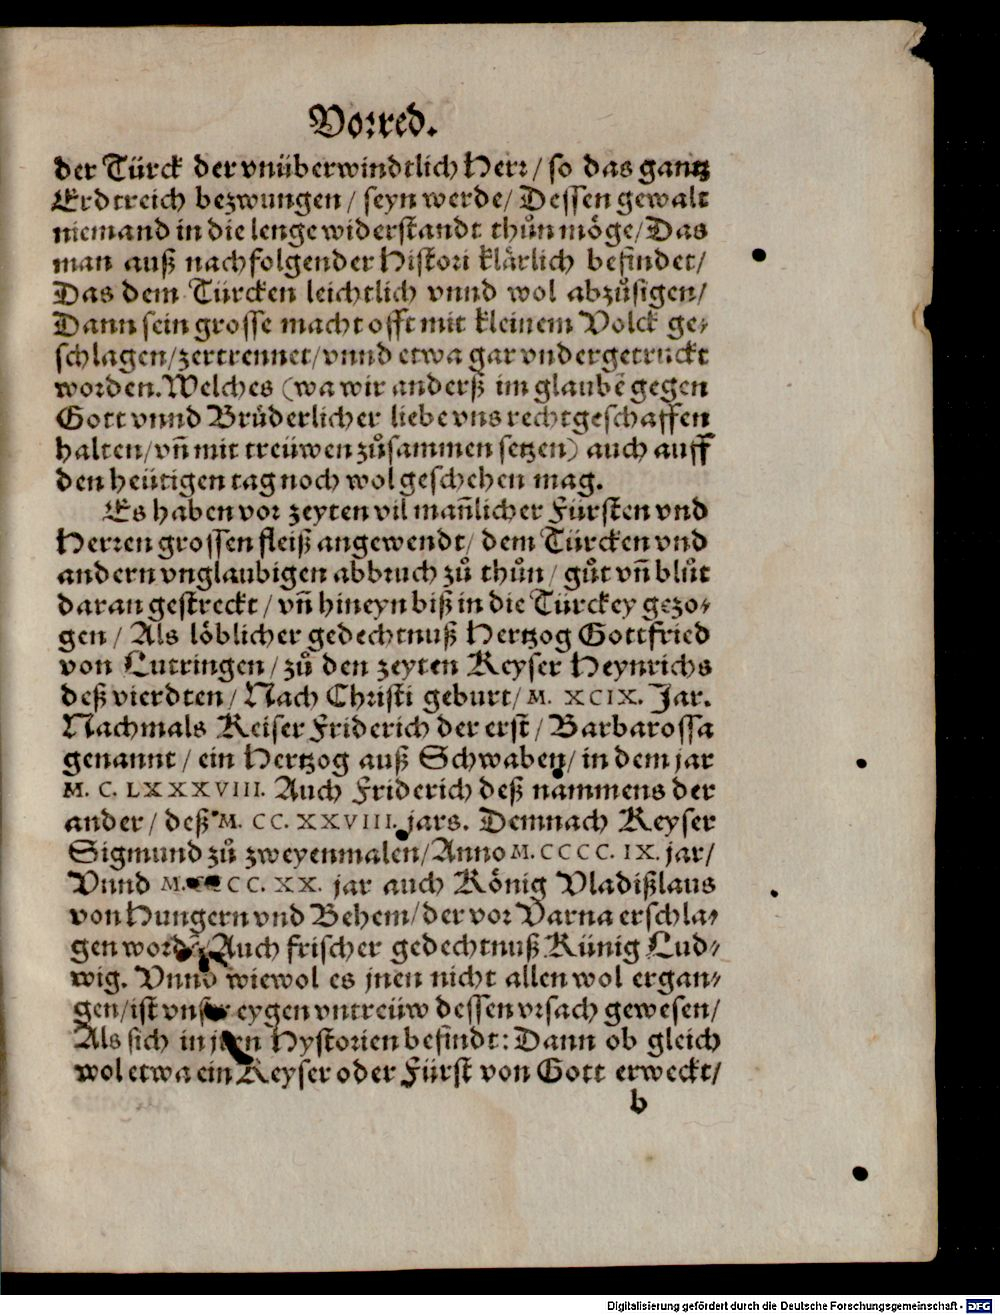 Vorred.
der Türck der vnüberwindtlich Herr / so das gantz
Erdtreich bezwungen / seyn werde / Dessen gewalt
niemand in die lenge widerstandt thůn möge / Das
man auß nachfolgender Histori klärlich befindet /
Das dem Türcken leichtlich vnnd wol abzůsigen /
Dann sein grosse macht offt mit kleinem Volck ge⸗
schlagen / zertrennet / vnnd etwa gar vndergetruckt
worden. Welches (wa wir anderß im glaubẽ gegen
Gott vnnd Brůderlicher liebe vns rechtgeschaffen
halten / vñ mit treüwen zůsammen setzen) auch auff
den heütigen tag noch wol geschehen mag.
Es haben vor zeyten vil mañlicher Fürsten vnd
Herren grossen fleiß angewendt / dem Türcken vnd
andern vnglaubigen abbruch zů thůn / gůt vñ blůt
daran gestreckt / vñ hineyn biß in die Türckey gezo⸗
gen / Als löblicher gedechtnuß Hertzog Gottfried
von Lutringen / zů den zeyten Keyser Heynrichs
deß vierdten / Nach Christi geburt / M. XCIX. Jar.
Nachmals Keiser Friderich der erst / Barbarossa
genannt / ein Hertzog auß Schwaben / in dem jar
M. C. LXXXVIII. Auch Friderich deß nammens der
ander / deß M. CC. XXVIII. jars. Demnach Keyser
Sigmund zů zweyenmalen / Anno M. CCCC. IX. jar /
Vnnd M. CCCC. XX. jar auch König Vladißlaus
von Hungern vnd Behem / der vor Varna erschla⸗
gen word Auch frischer gedechtnuß Künig Lud⸗
wig. Vnnd wiewol es jnen nicht allen wol ergan⸗
gen / ist vnser eygen vntreüw dessen vrsach gewesen /
Als sich in jren Hystorien befindt: Dann ob gleich
wol etwa ein Keyser oder Fürst von Gott erweckt /
b
Digitalisierung gefördert durch die Deutsche Forschungsgemeinschaft - DFG